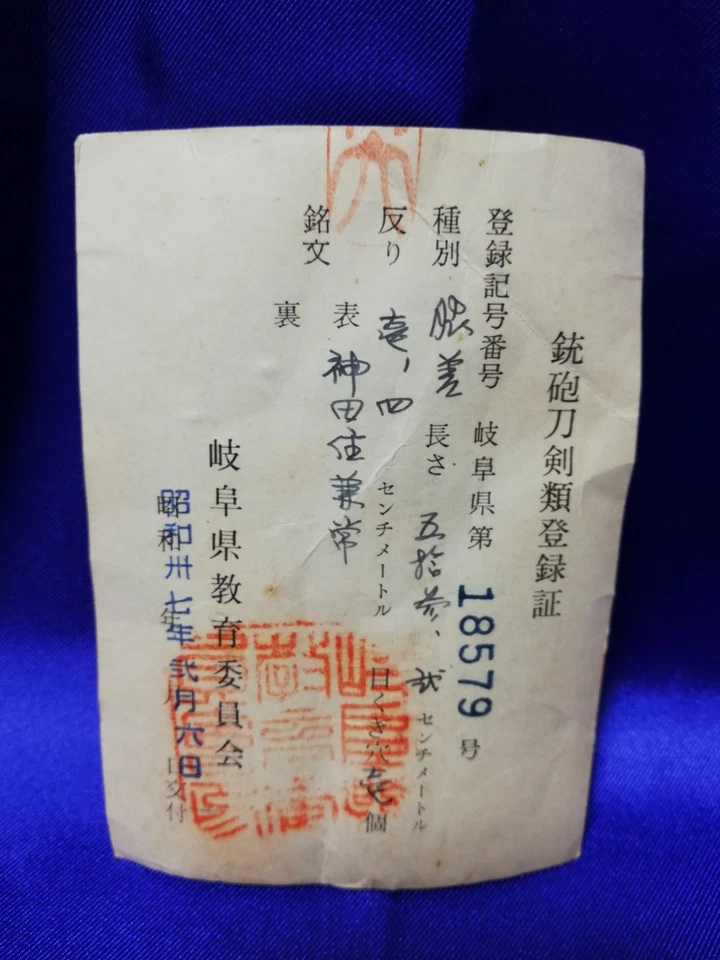 銃砲刀剣類登録証
登録記号番号 岐阜県第 18579 号
種別 脇差 長さ 五拾参、弐 センチメートル
反り 壱、四 センチメートル 目くぎ穴 壱 個
銘文 表 神田住兼常
裏
岐阜県教育委員会
昭和卅七年弐月六日交付